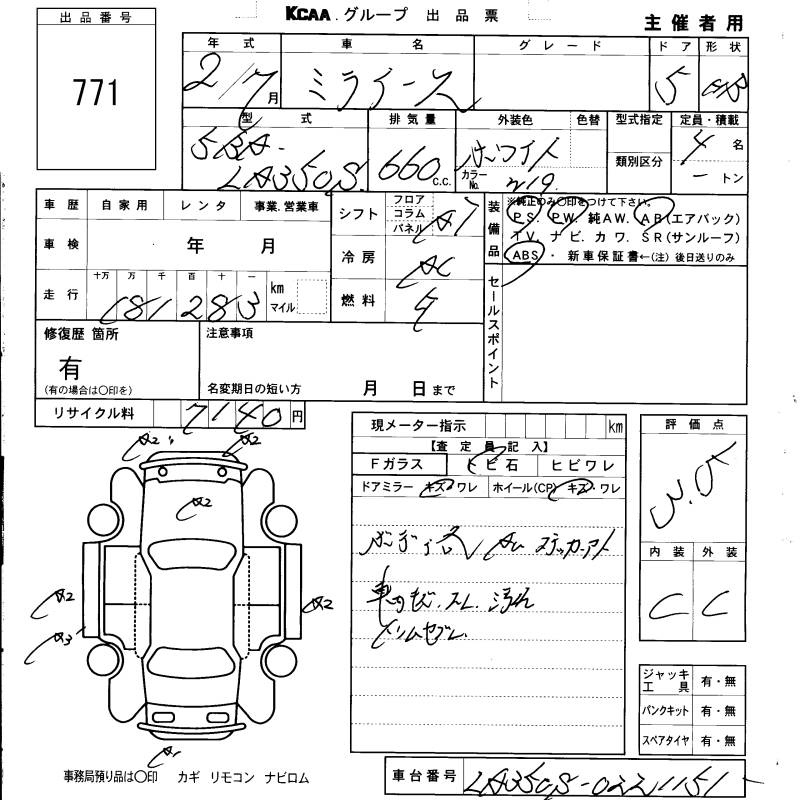 KCAA.グループ 出品票
主催者用
出品番号
771
年式 車名 グレード ドア 形状
2/7月 ミライース 5 HB
型式 排気量 外装色 色替 型式指定 定員・積載
5BA- 660 c.c. ホワイト 4名
LA350S カラーNo. W19 類別区分 ートン
車歴 自家用 レンタ 事業.営業車
シフト フロア コラム パネル AT
装備品 ※純正のみ〇印をつけて下さい。
P.S. P.W. 純A.W. A.B(エアバック)
T.V. ナビ. カワ. S.R(サンルーフ)
ABS・ 新車保証書←(注) 後日送りのみ
車検 年 月
冷房 AC
走行 十万 万 千 百 十 一
181283 km マイル
燃料 G
セールスポイント
修復歴 箇所
有
(有の場合は〇印を)
注意事項
名変期日の短い方 月 日まで
リサイクル料 7140円
現メーター指示 km
【査定員記入】
Fガラス トビ石 ヒビワレ
ドアミラー キズ・ワレ ホイール(CP) キズ・ワレ
評価点
3.5
内装 外装
C C
A2 A2
A2
A2
A3
A2
A1
ジャッキ工具 有・無
パンクキット 有・無
スペアタイヤ 有・無
事務局預り品は〇印 カギ リモコン ナビロム
車台番号 LA350S-0221151